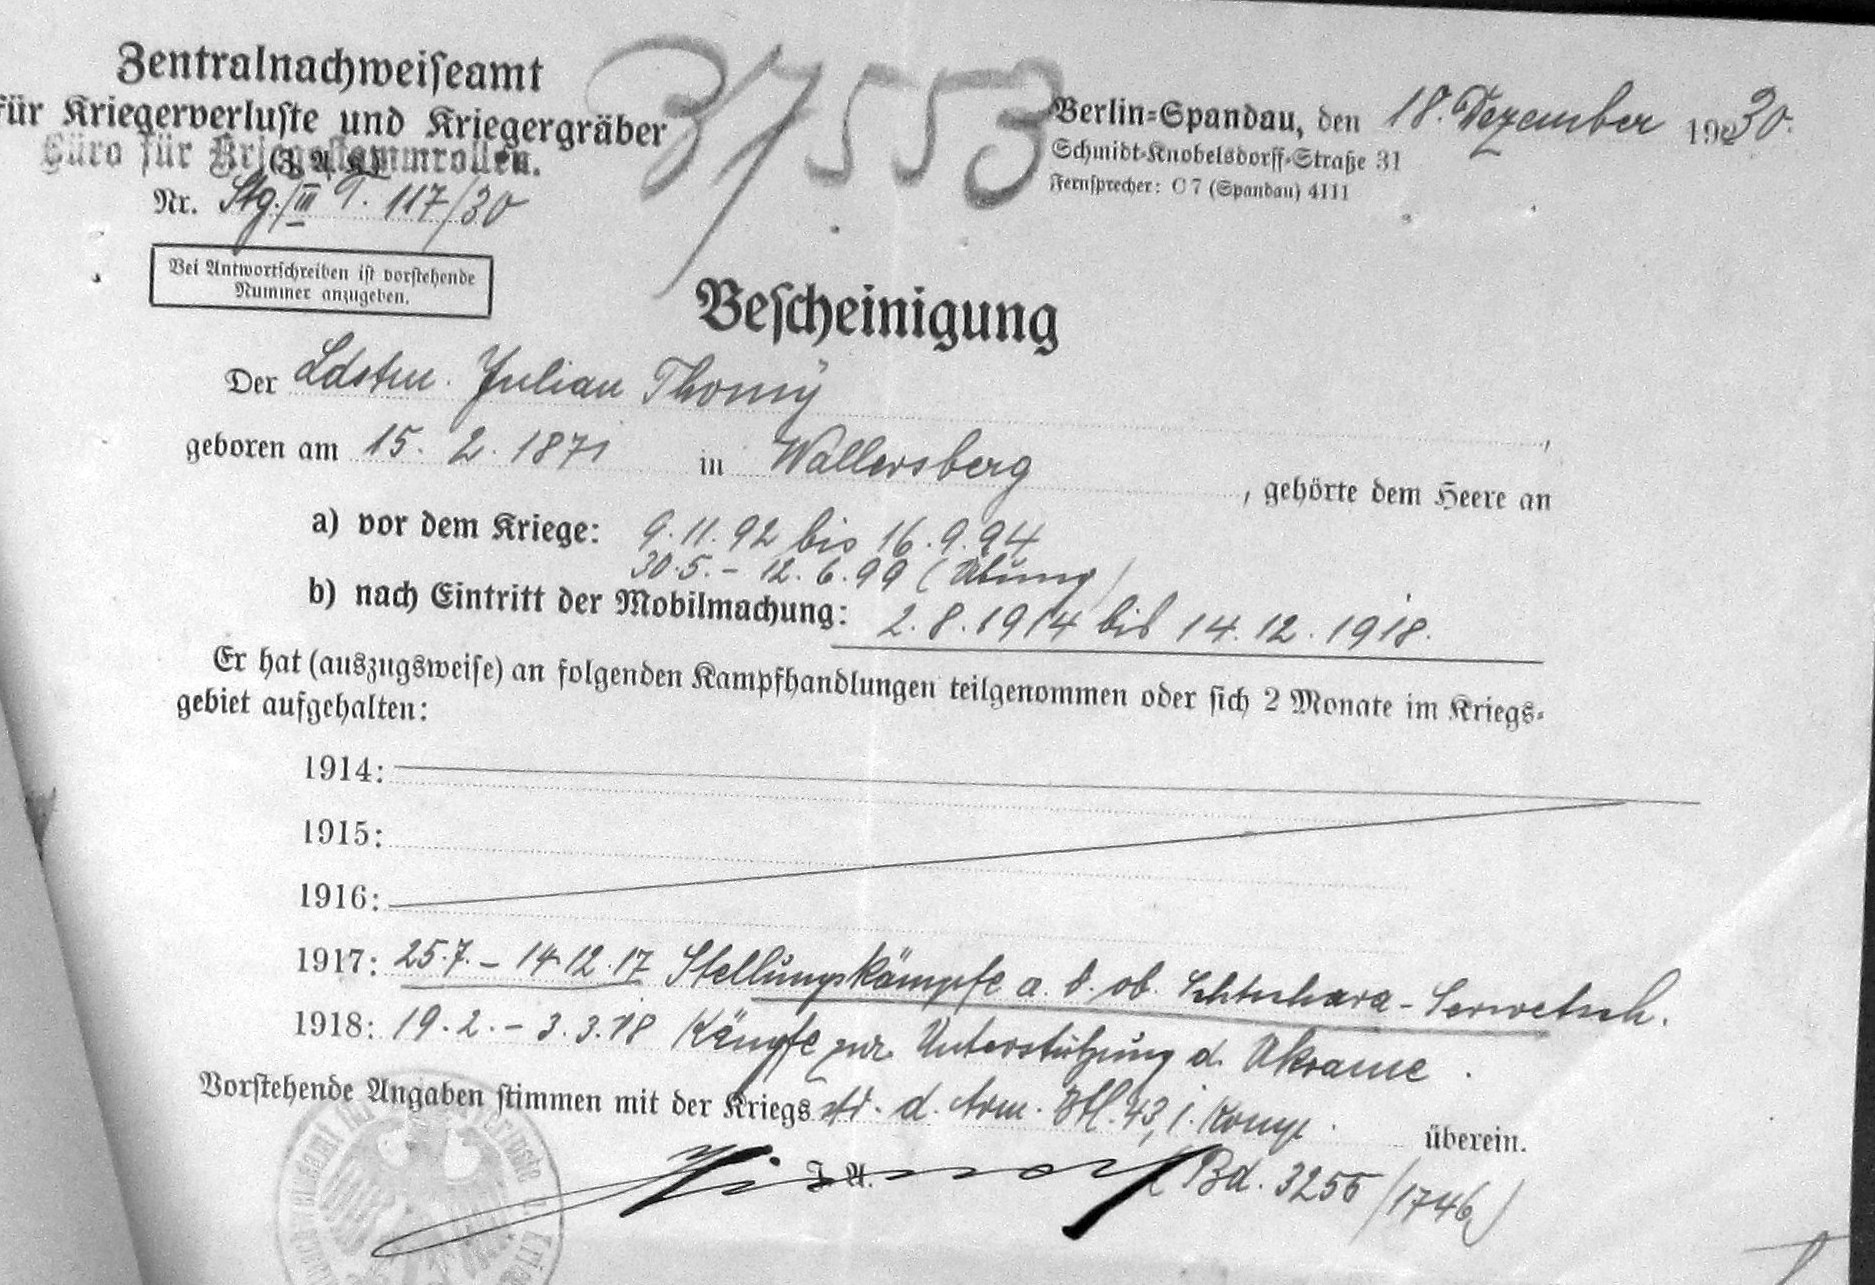 Zentralnachweiseamt
für Kriegerverluste und Kriegergräber
Büro für Kriegsstammrollen.
(Z. A. K.)
37553
Berlin-Spandau, den 18. Dezember 1930.
Schmidt-Knobelsdorff-Straße 31
Fernsprecher: C 7 (Spandau) 4111
Nr. Stg./III T. 117/30
Bei Antwortschreiben ist vorstehende
Nummer anzugeben.
Bescheinigung
Der Ldstm. Julian Thomy,
geboren am 15. 2. 1871 in Wallersberg, gehörte dem Heere an
a) vor dem Kriege: 9.11.92 bis 16.9.94
30.5. - 12.6.99 (Übung)
b) nach Eintritt der Mobilmachung: 2.8.1914 bis 14.12.1918.
Er hat (auszugsweise) an folgenden Kampfhandlungen teilgenommen oder sich 2 Monate im Kriegs-
gebiet aufgehalten:
1914:
1915:
1916:
1917: 25.7. - 14.12.17 Stellungskämpfe a. d. ob. Schtschara - Serwetsch.
1918: 19.2. - 3.3.18 Kämpfe zur Unterstützung d. Ukraine.
Vorstehende Angaben stimmen mit der Kriegs d. Arm. Btl. 43, 1. Komp. überein.
I. A.
Bd. 3255 /1746)